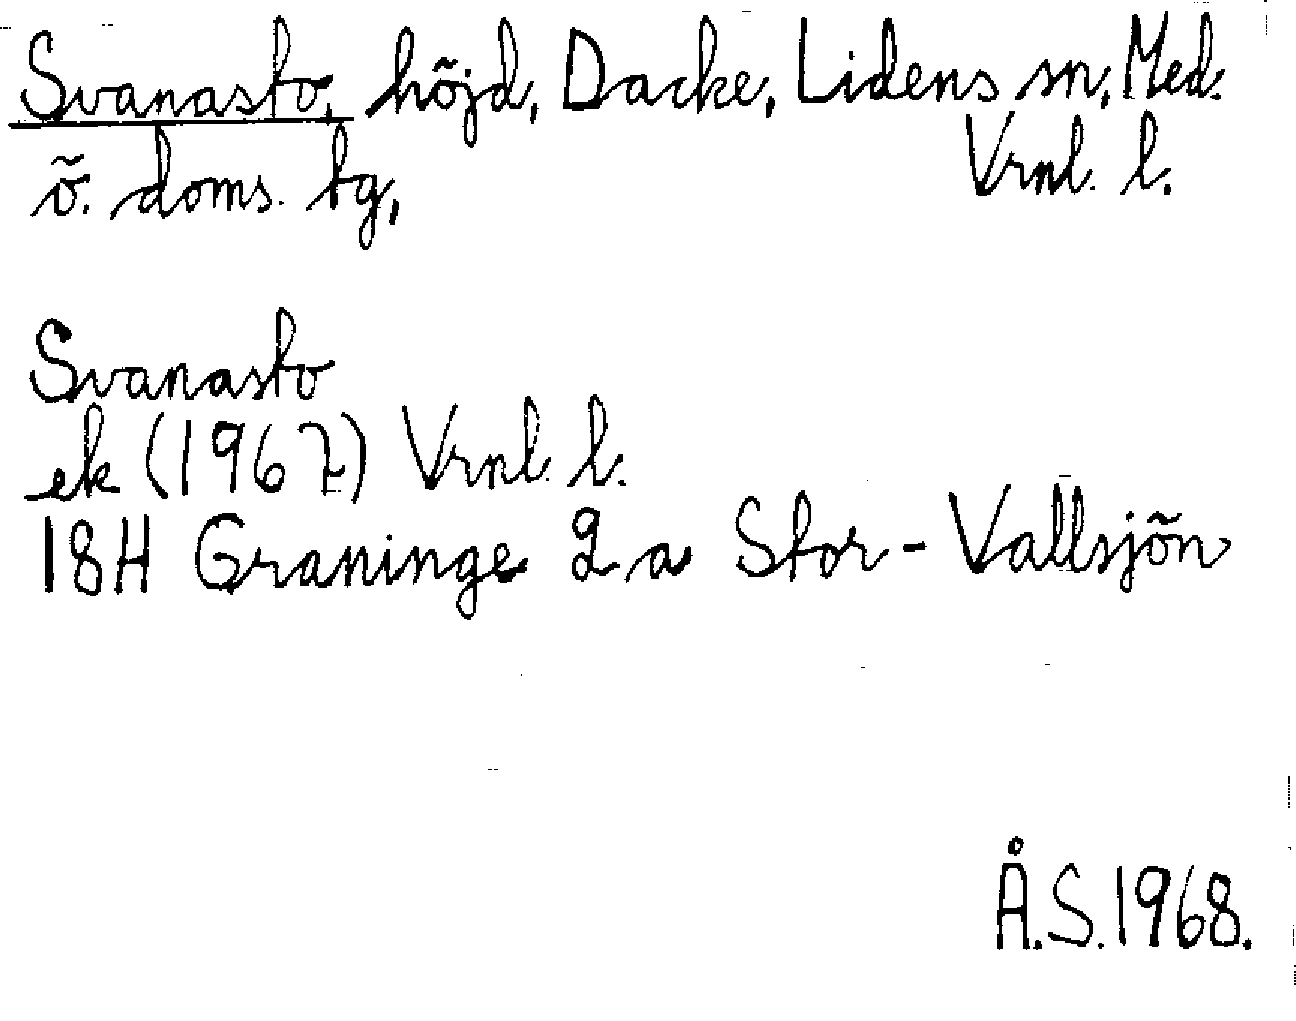 Svanasto, höjd, Dacke, Lidens sn, Med.
ö. doms. tg, Vrnl. l.
Svanasto
ek (1967) Vrnl. l.
18H Graninge 2 a Stor-Vallsjön
Å.S.1968.